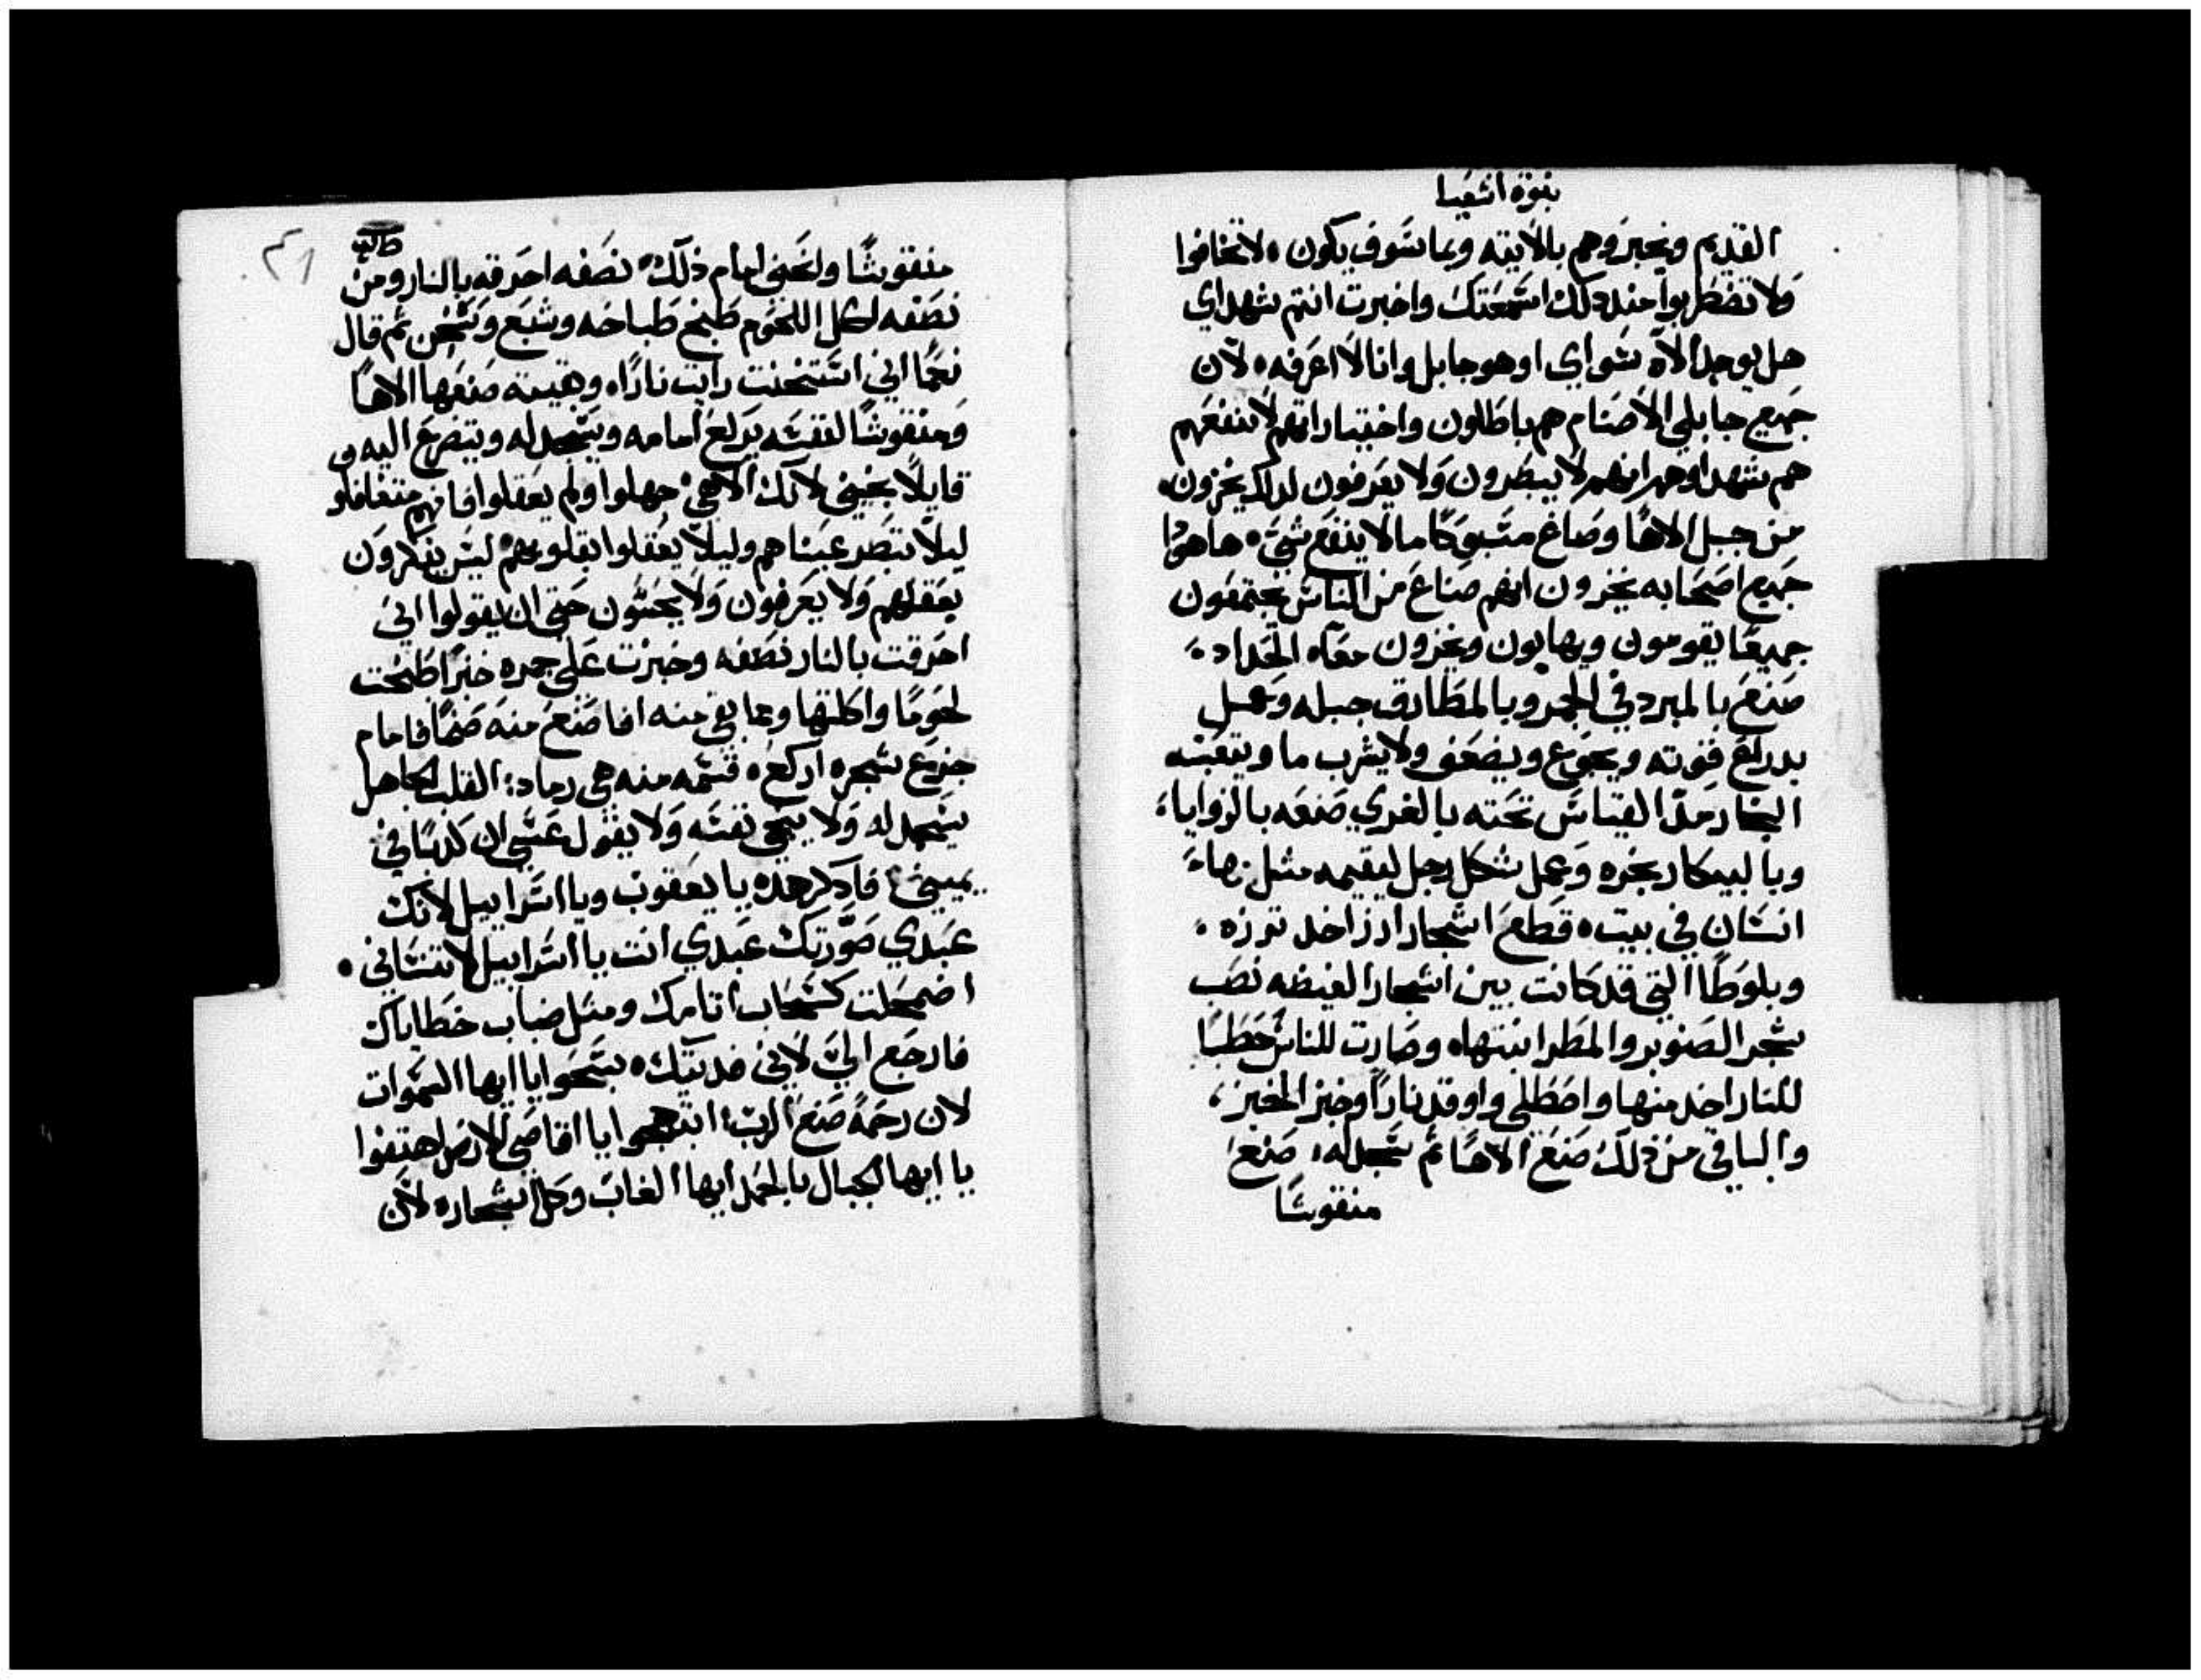 نبوة اشعيا
القديم ونخبروهم بالاتيه وبما سوف يكون ٠ لا تخافوا
ولا تضطربوا منددلك اسمعتك واخبرت انتم شهداي
هل يوجد الاه سواي او هو جابل وانا لا اعرفه ٠ لان
جميع جابلي الاصنام هم باطلون واختياراتهم لا تنفعهم
هم شهداوهم انهم لا يبصرون ولا يعرفون لدلك يخزون ٠
من جبل الاها وصاغ مسبوكا ما لا ينفع شي ٠ ها هودا
جميع اصحابه يخزون انهم صناع من الناس يجتمعون
جميعا يقومون ويهابون ويخزون معا ٠ الحداد ٠
صنع بالمبرد في الجمر وبالمطارق جبله وعمل
بدراع قوته ويجوع ويضعف ولا يشرب ما ويتعبه
النجار مد القياس نحته بالغري صنعه بالزوايا ٠
وبالبيكار نجره وعمل شكل رجل ليقيمه مثل بهاء
انسان في بيت ٠ قطع اشجار ارز اخد ترزه ٠
وبلوطا التي قد كانت بين اشجار الغيظه نصب
شجر الصنوبر والمطر انبتها ٠ وصارت للناس حطبا
للنار اخد منها واصطلي واوقد نارا وخبز الخبز ،
والباقي من ذلك صنع الاها ثم سجد له ٠ صنع
منقوشا
٣١
منقوشا وانحني امام ذلك ٠ نصفه احرقه بالنار ومن
نصفه اكل اللحوم طبخ طباخه وشبع وتسخن ثم قال
نعما اني استسخنت رايت نارا ٠ وبقيته صنعها الاها
ومنقوشا لنفسه يركع امامه ويسجد له ويتضرع اليه
قايلا نجيني لانك الاهي ٠ جهلوا ولم يعقلوا فانهم متغافلو
ليلا تبصر عيناهم وليلا يعقلوا بقلوبهم ٠ ليس يفكرون
بعقلهم ولا يعرفون ولا يحسون حتي ان يقولوا اني
احرقت بالنار نصفه وخبزت علي جمره خبزا طبخت
لحوما واكلتها وما بقي منه افا صنع منه صنما فامام
جزع شجره اركع ٠ قسمه منه هي رماد : القلب الجاهل
يسجد له ولا ينجي نفسه ولا يقول عسي ان كدبا في
يميني ٠ فادكر هده يا يعقوب ويا اسراييل لانك
عبدي صورتك عبدي انت يا اسراييل لا تنساني ٠
اضمحلت كسحاب اتامك ومثل ضباب خطاياك
فارجع الي لاني فديتك ٠ سبحوا يا ايها السموات
لان رحمة صنع الرب ٠ ابتهجوا يا اقاصي الارض اهتفوا
يا ايها الجبال بالحمد ايها الغاب وكل اشجاره لان